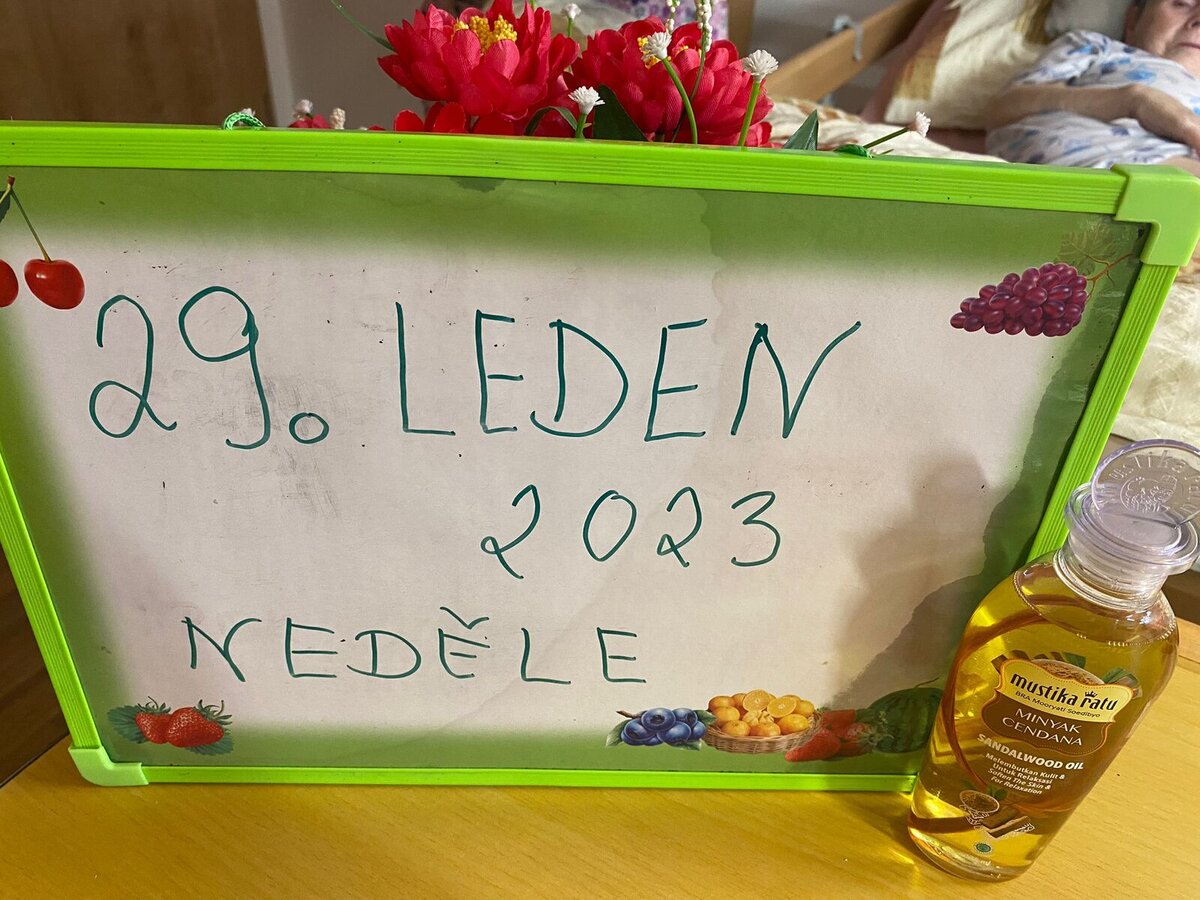 29. LEDEN
2023
NEDĚLE
mustika ratu
BRA Mooryati Soedibyo
MINYAK
CENDANA
SANDALWOOD OIL
Melembutkan Kulit &
Untuk Relaksasi
Soften The Skin &
For Relaxation